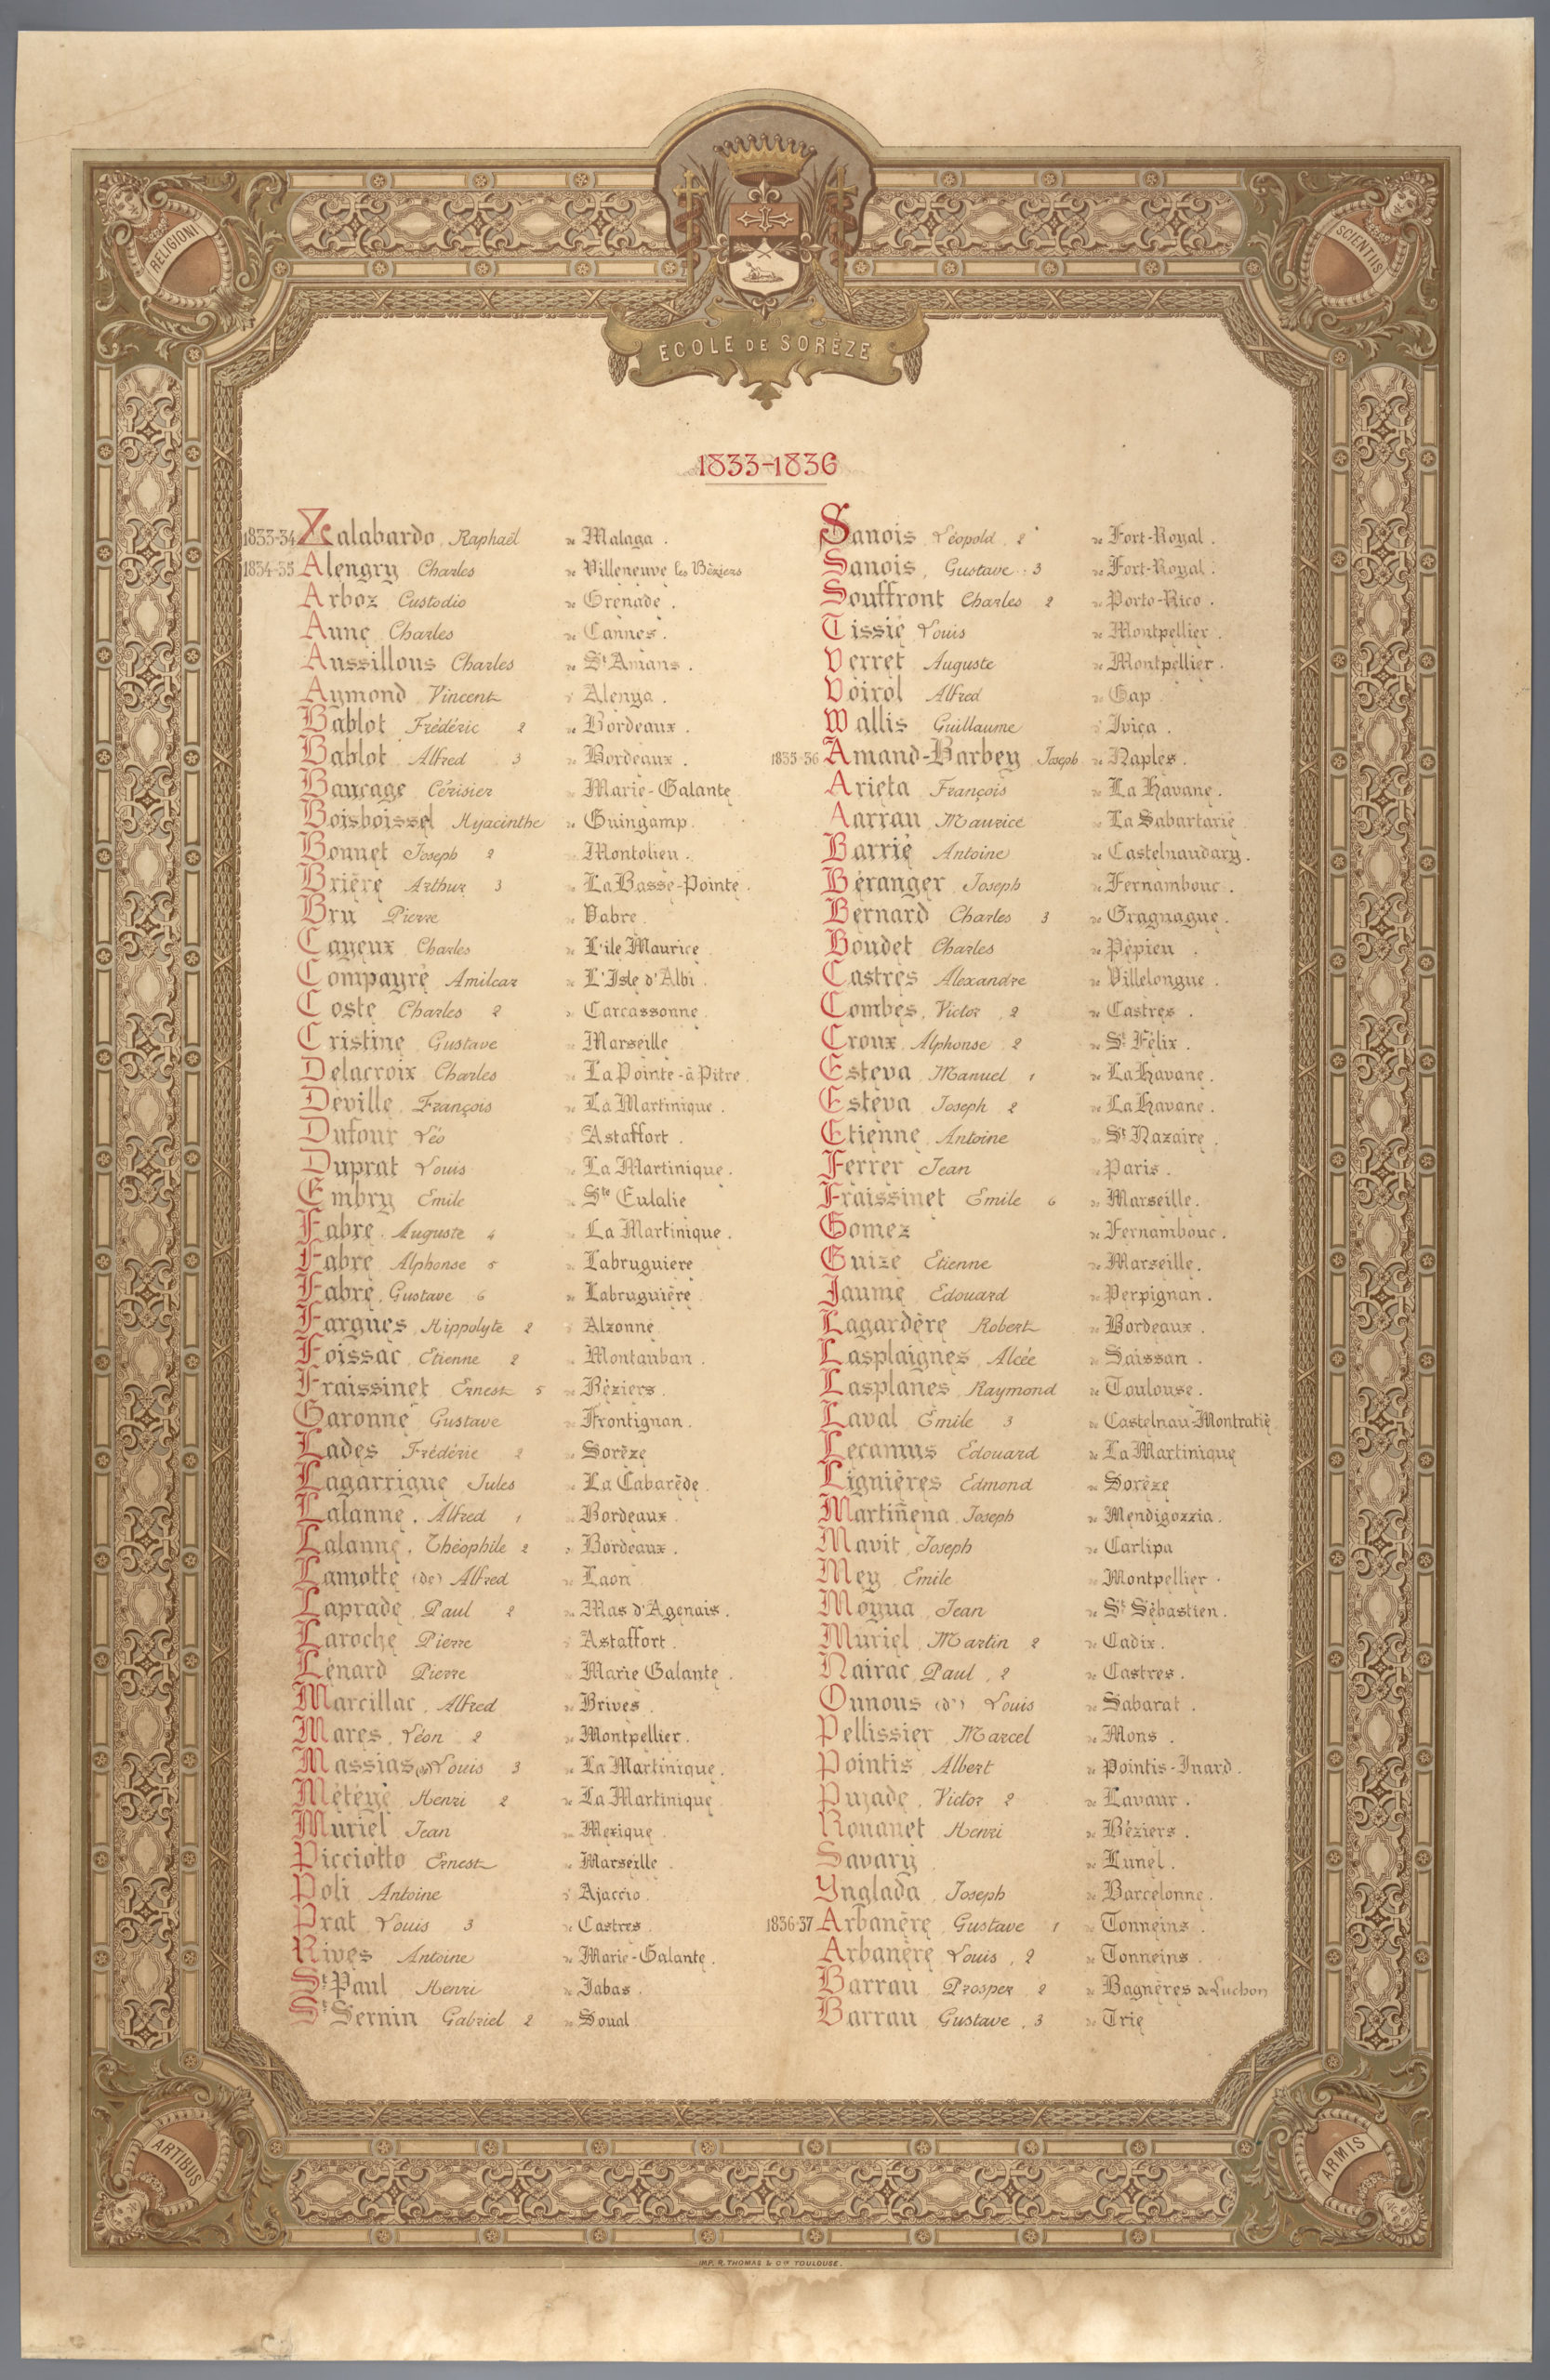 RELIGIONI
SCIENTIIS
ÉCOLE DE SORÈZE
1833-1836
1833-34 Xalabardo, Raphaël de Malaga.
1834-35 Alengry Charles de Villeneuve les Béziers
Arboz Custodio de Grenade.
Aune Charles de Cannes.
Aussillous Charles de St Amans.
Aymond Vincent d' Alenya.
Bablot Frédéric 2 de Bordeaux.
Bablot Alfred 3 de Bordeaux.
Baucage Cérisier de Marie-Galante
Boisboissel Hyacinthe de Guingamp.
Bonnet Joseph 2 de Montolieu.
Brière Arthur 3 de La Basse-Pointe.
Bru Pierre de Vabre.
Cayeux Charles de L'île Maurice
Compayré Amilcar de L'Isle d'Albi.
Coste Charles 2 de Carcassonne.
Cristine Gustave de Marseille
Delacroix Charles de La Pointe-à Pitre.
Deville, François de La Martinique.
Dufour Léo d' Astaffort.
Duprat Louis de La Martinique.
Embry Emile de Ste Eulalie
Fabre. Auguste 4 de La Martinique.
Fabre Alphonse 5 de Labruguière
Fabre, Gustave 6 de Labruguière.
Fargues, Hippolyte 2 d' Alzonne
Foissac, Etienne 2 de Montauban.
Fraissinet Ernest 5 de Béziers.
Garonne Gustave de Frontignan.
Lades Frédéric 2 de Sorèze
Lagarrigue Jules de La Cabarède.
Lalanne, Alfred 1 de Bordeaux.
Lalanne, Théophile 2 de Bordeaux.
Lamotte (de) Alfred de Laon
Laprade Paul 2 du Mas d'Agenais.
Laroche Pierre d' Astaffort.
Lénard Pierre de Marie Galante.
Marcillac, Alfred de Brives.
Mares, Léon 2 de Montpellier.
Massias (de) Louis 3 de La Martinique.
Météyé Henri 2 de La Martinique
Muriel Jean du Mexique.
Picciotto Ernest de Marseille.
Poli Antoine d' Ajaccio.
Prat Louis 3 de Castres.
Rives Antoine de Marie-Galante.
St Paul Henri de Jabas.
St Sernin Gabriel 2 de Soual.
Sanois, Léopold, 2 de Fort-Royal.
Sanois, Gustave. 3 de Fort-Royal.
Souffront Charles 2 de Porto-Rico.
Tissié Louis de Montpellier.
Verret Auguste de Montpellier.
Voirol Alfred de Gap
Wallis Guillaume d' Iviça.
1835-36 Amand-Barbey Joseph de Naples.
Arieta François de La Havane.
Aarrau, Maurice de La Sabartarié
Barrié Antoine de Castelnaudary.
Béranger, Joseph de Fernambouc.
Bernard Charles 3 de Gragnague.
Boudet Charles de Pépieu.
Castres Alexandre de Villelongue.
Combes, Victor, 2 de Castres.
Croux, Alphonse 2 de St Félix.
Esteva, Manuel 1 de La Havane.
Estéva Joseph 2 de La Havane.
Etienne, Antoine de St Nazaire.
Ferrer Jean de Paris.
Fraissinet Emile 6 de Marseille.
Gomez de Fernambouc.
Guize Etienne de Marseille.
Jaume Edouard de Perpignan.
Lagardère Robert de Bordeaux.
Lasplaignes, Alcée de Saissan.
Lasplanes, Raymond de Toulouse.
Laval Emile 3 de Castelnau-Montratié
Lecamus Edouard de La Martinique
Lignières Edmond de Sorèze
Martiñena, Joseph de Mendigozzia.
Mavit, Joseph de Carlipa
Mey Emile de Montpellier.
Moyua, Jean de St Sébastien.
Muriel, Martin 2 de Cadix.
Nairac, Paul, 2 de Castres.
Ounous (d') Louis de Sabarat.
Pellissier Marcel de Mons.
Pointis, Albert de Pointis-Inard.
Pujade, Victor 2 de Lavaur.
Rouanet Henri de Béziers.
Savary de Lunel.
Ynglada, Joseph de Barcelonne.
1836-37 Arbanère, Gustave 1 de Tonneins.
Arbanère Louis, 2 de Tonneins.
Barrau Prosper 2 de Bagnères de Luchon
Barrau Gustave, 3 de Trie
ARTIBUS
ARMIS
IMP. R. THOMAS & Cie TOULOUSE.